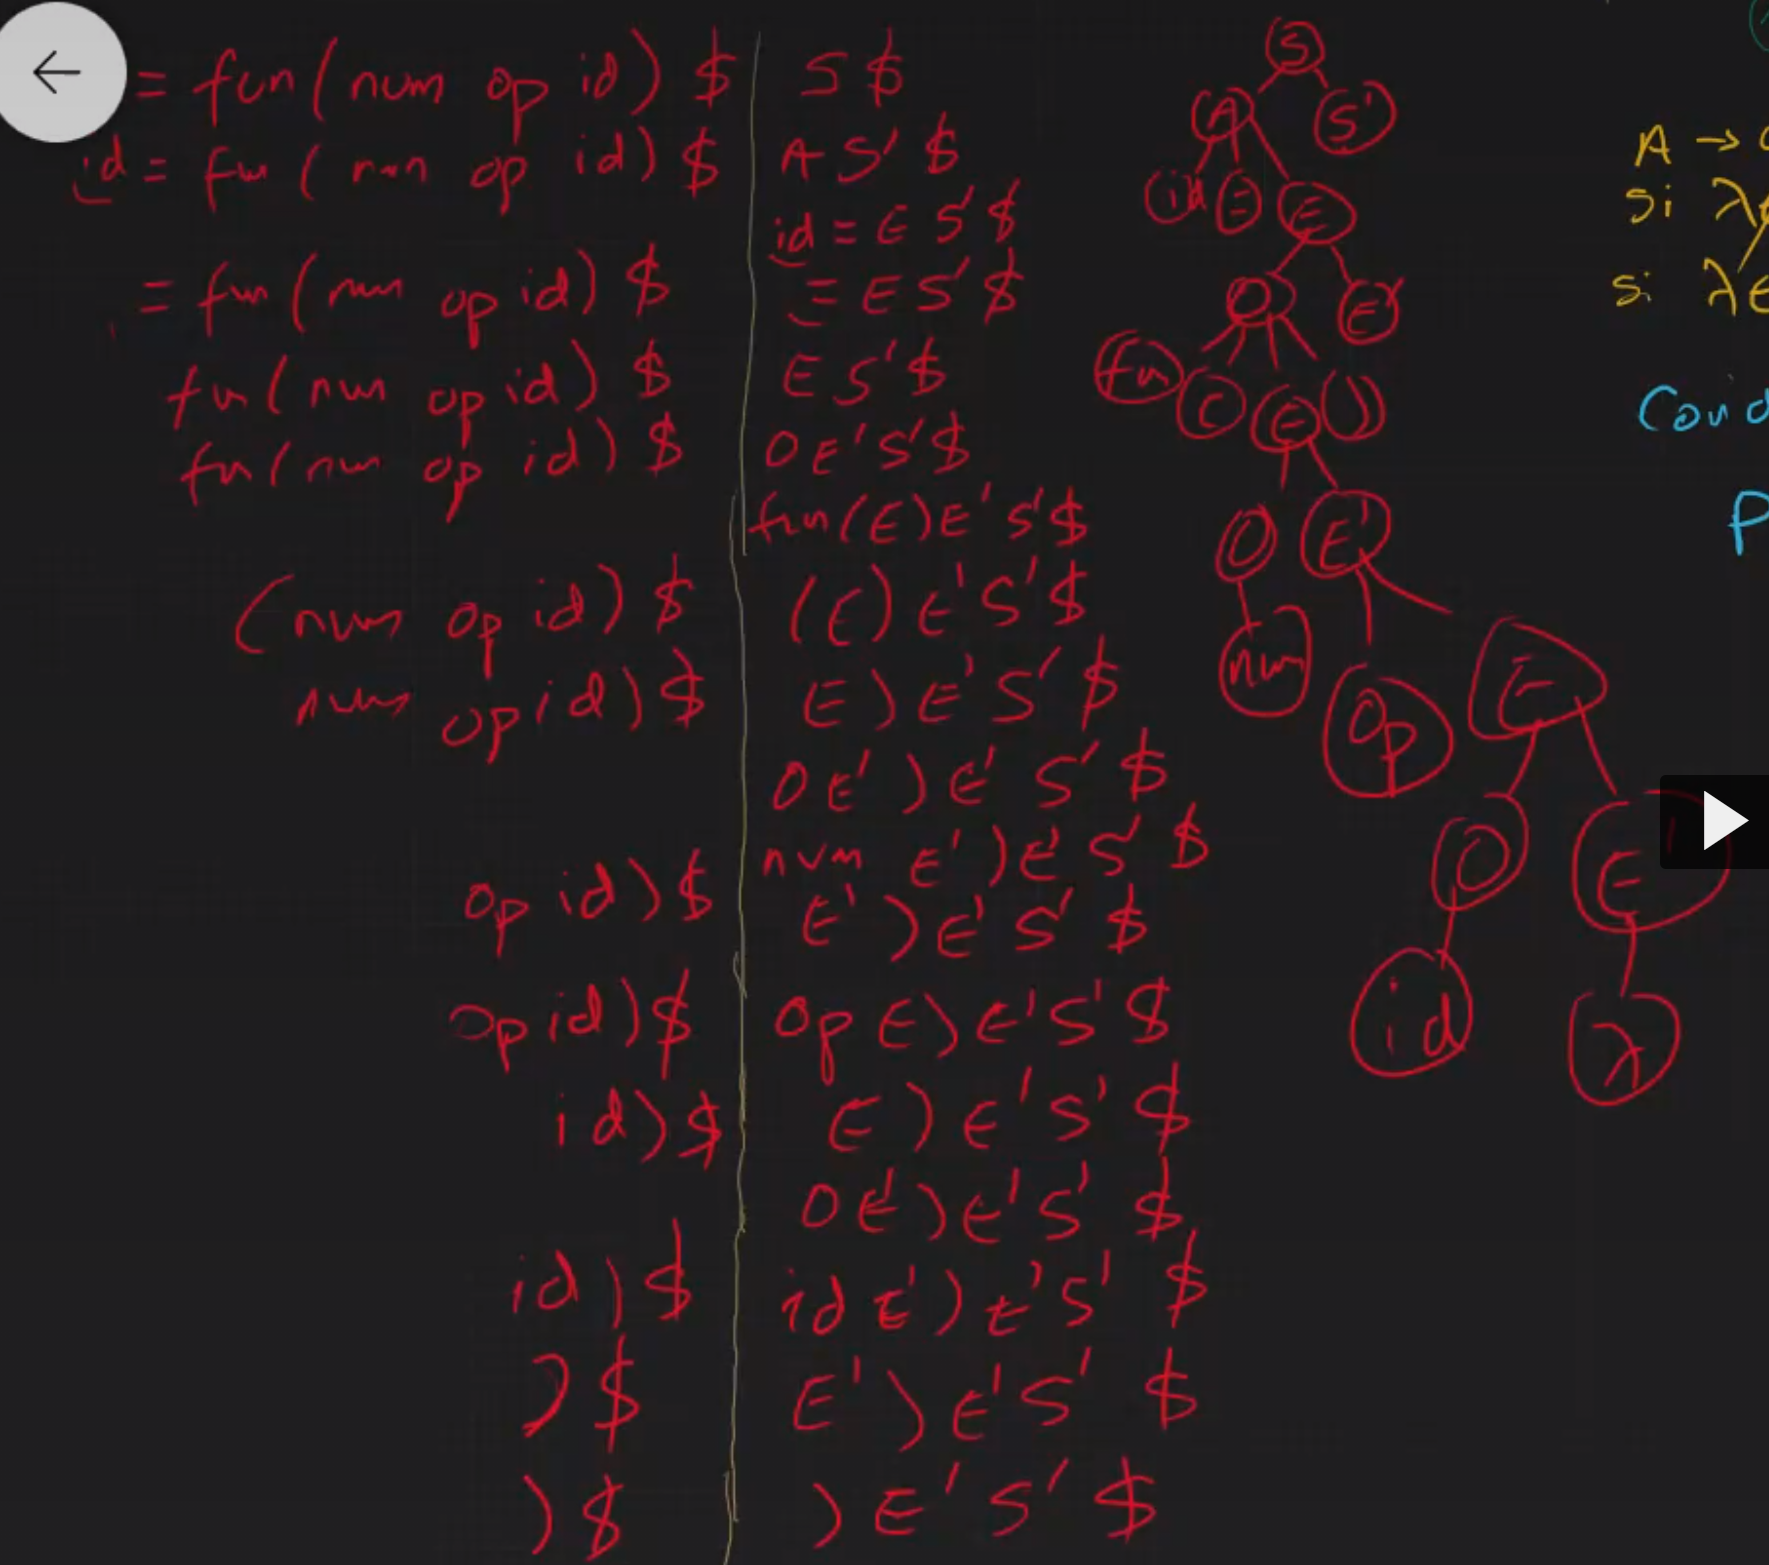 = fun ( num op id ) $ S $
id = fun ( num op id ) $ A S' $
id = E S' $
= fun ( num op id ) $ = E S' $
fun ( num op id ) $ E S' $
fun ( num op id ) $ O E' S' $
fun ( E ) E' S' $
( num op id ) $ ( E ) E' S' $
num op id ) $ E ) E' S' $
O E' ) E' S' $
num E' ) E' S' $
op id ) $ E' ) E' S' $
op id ) $ op E ) E' S' $
id ) $ E ) E' S' $
O E' ) E' S' $
id ) $ id E' ) E' S' $
) $ E' ) E' S' $
) $ ) E' S' $
S
A S'
id = E
O E'
fun ( E )
O E'
num
op E
O E'
id λ
A →
si λ
si λ
Cond
P